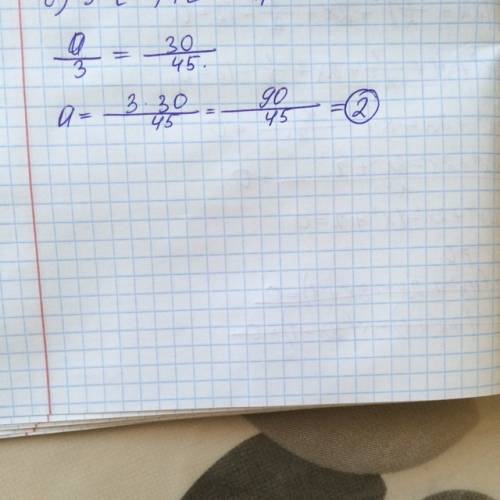 a/3 = 30/45.
a = 3·30/45 = 90/45 = 2